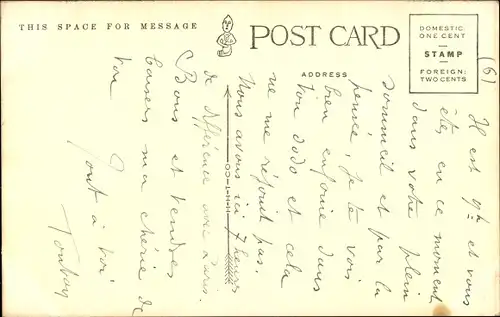 THIS SPACE FOR MESSAGE
POST CARD
ADDRESS
DOMESTIC:
ONE CENT
STAMP
FOREIGN:
TWO CENTS
(6)
Il est 9h et vous
êtes en ce moment
dans votre plein
sommeil et par la
pensée, je te vois
bien enfoncée dans
ton dodo et cela
ne me réjouit pas.
Nous avons ici 7 heures
de différence avec Paris.
Bons et tendres
baisers ma chérie de
ton
Tout à toi